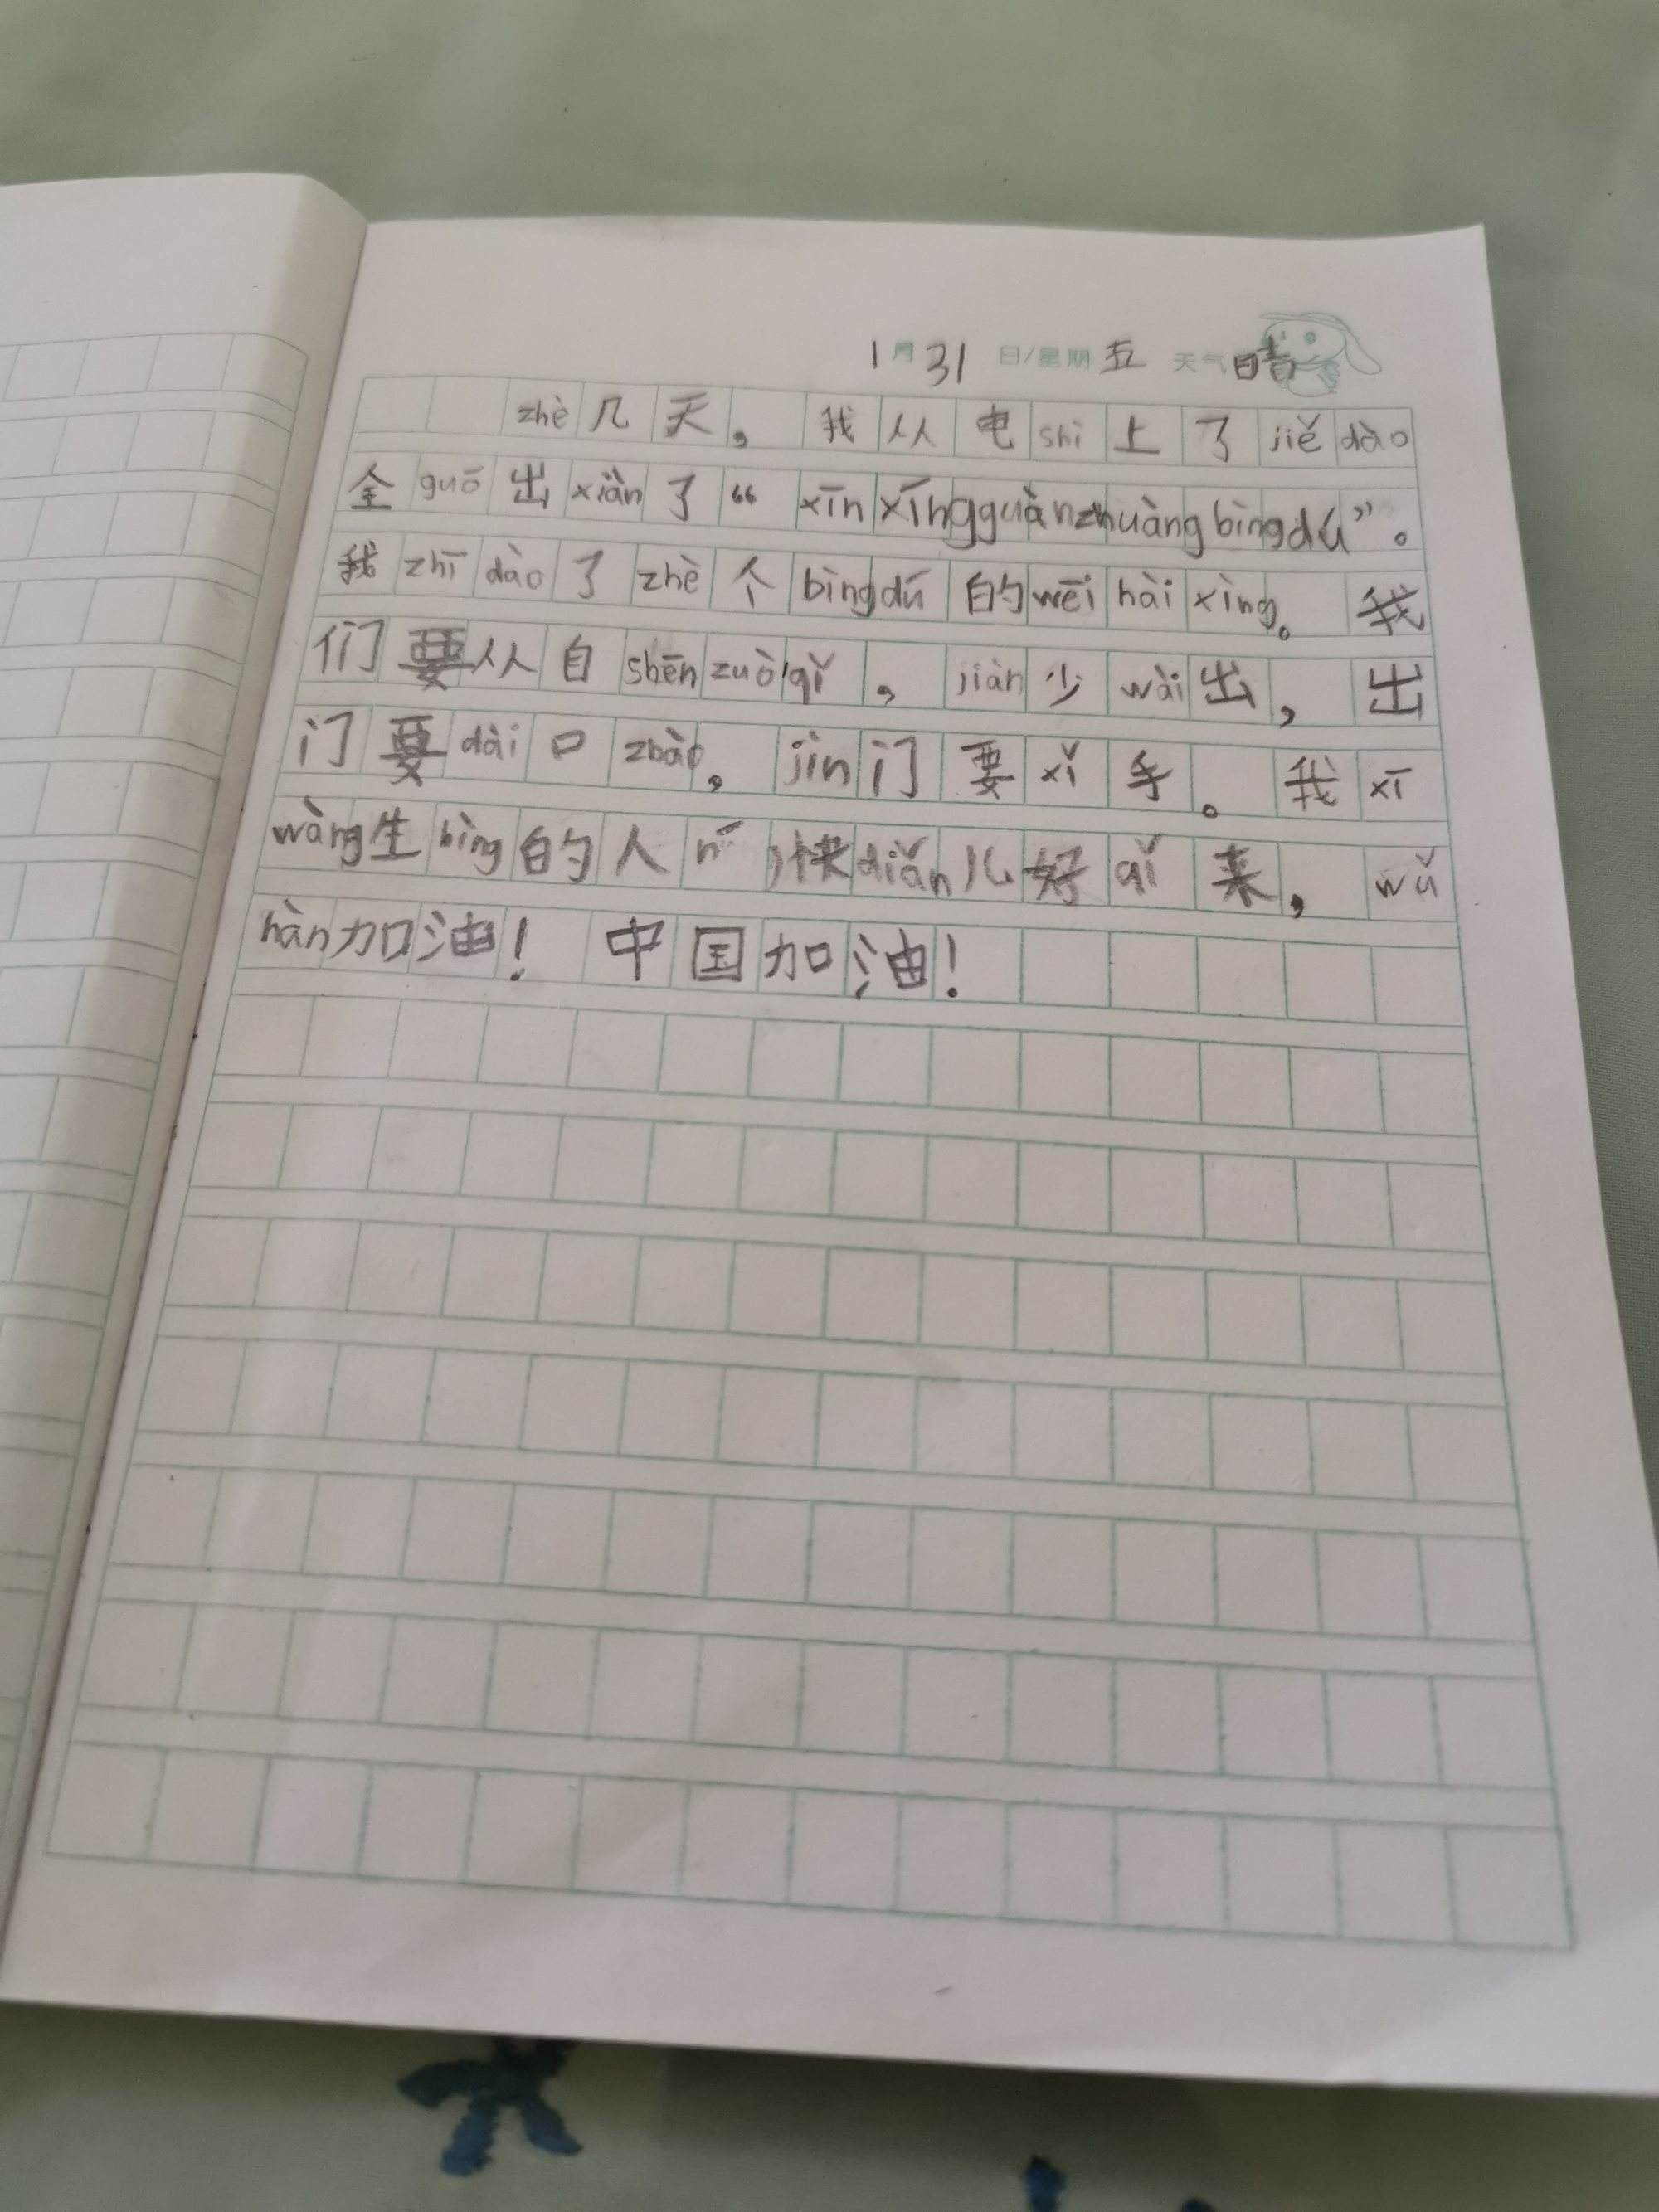 1月31日/星期五 天气晴
zhè几天，我从电shì上了jiě dào
全guó出xiàn了“xīn xíngguànzhuàngbìngdú”。
我zhī dào了zhè个bìngdú的wēi hài xìng。我
们要从自shēn zuò qǐ，jiàn少wài出，出
门要dài口zhào。jìn门要xǐ手。我xī
wàng生bìng的人 快diǎn儿好qǐ来，wǔ
hàn加油！中国加油！